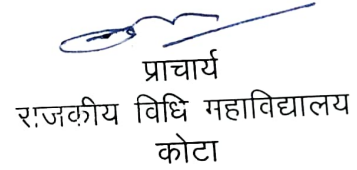 प्राचार्य
राजकीय विधि महाविद्यालय
कोटा